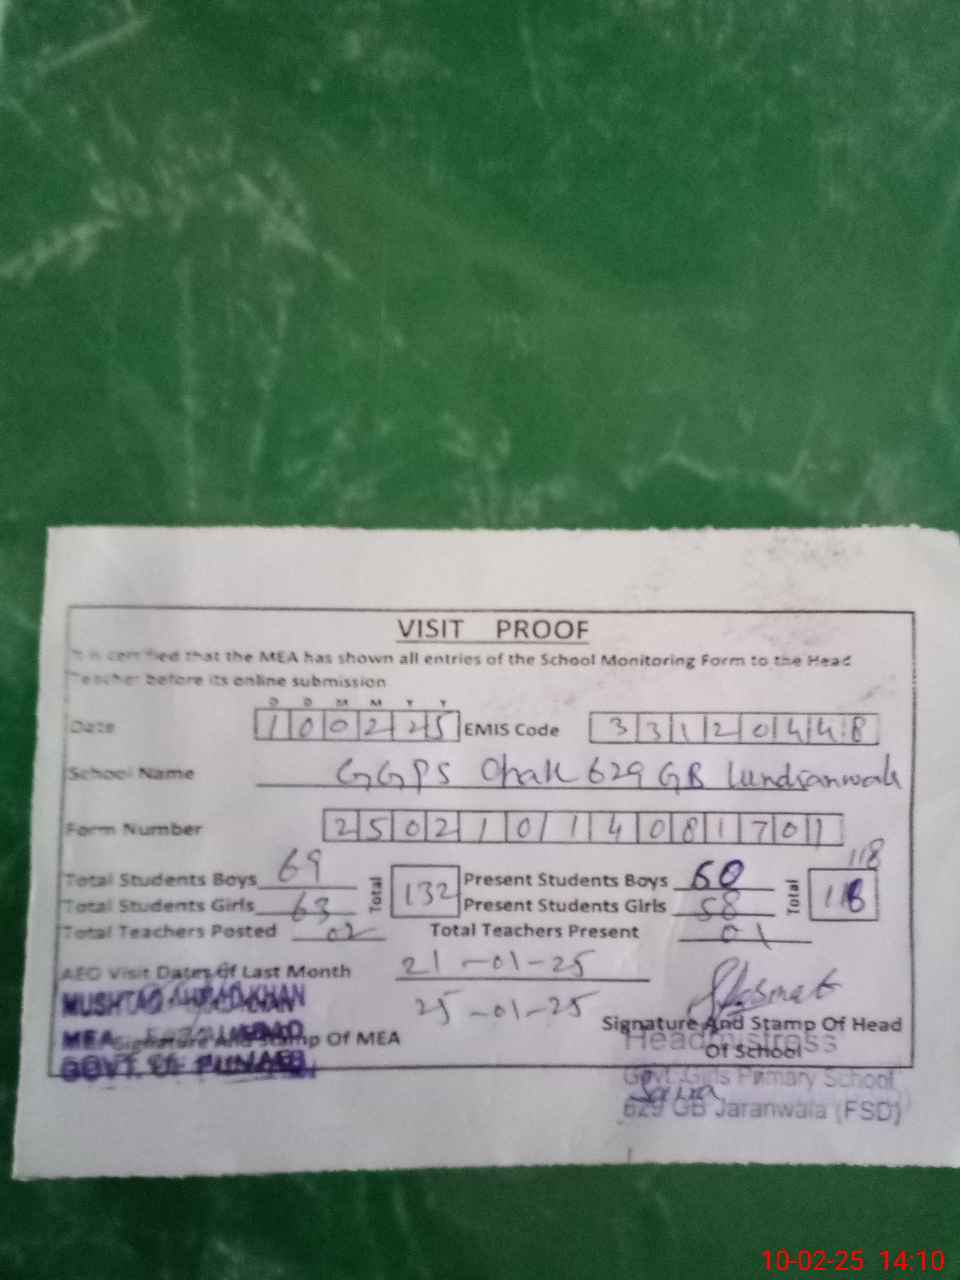 VISIT PROOF
It is certified that the MEA has shown all entries of the School Monitoring Form to the Head
Teacher before its online submission
D D M M Y Y
Date 100225 EMIS Code 33120448
School Name GGPS Chak 629 GB Lundianwala
Form Number 250210114081701
118
Total Students Boys 69 Total 132 Present Students Boys 60 Total 118
Total Students Girls 63 Present Students Girls 58
Total Teachers Posted 02 Total Teachers Present 01
AEO Visit Dates Of Last Month 21-01-25
25-01-25
MUSHTAQ AHMAD KHAN
MEA
Signature And Stamp Of MEA
GOVT. OF PUNJAB
Signature And Stamp Of Head
Of School
Headmistress
Govt. Girls Primary School
629 GB Jaranwala (FSD)
10-02-25 14:10